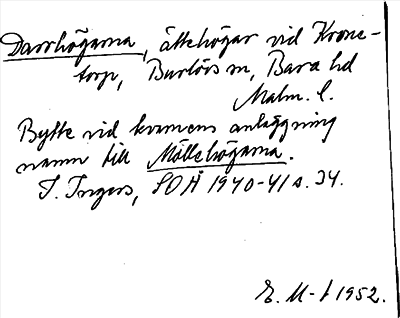 Darrhögarna, ättehögar vid Krone-
torp, Burlövs sn, Bara hd
Malm. l.
Bytte vid kvarnens anläggning
namn till Möllehögarna.
I. Ingers, SOÅ 1940-41 s. 34.
E. M-t 1952.